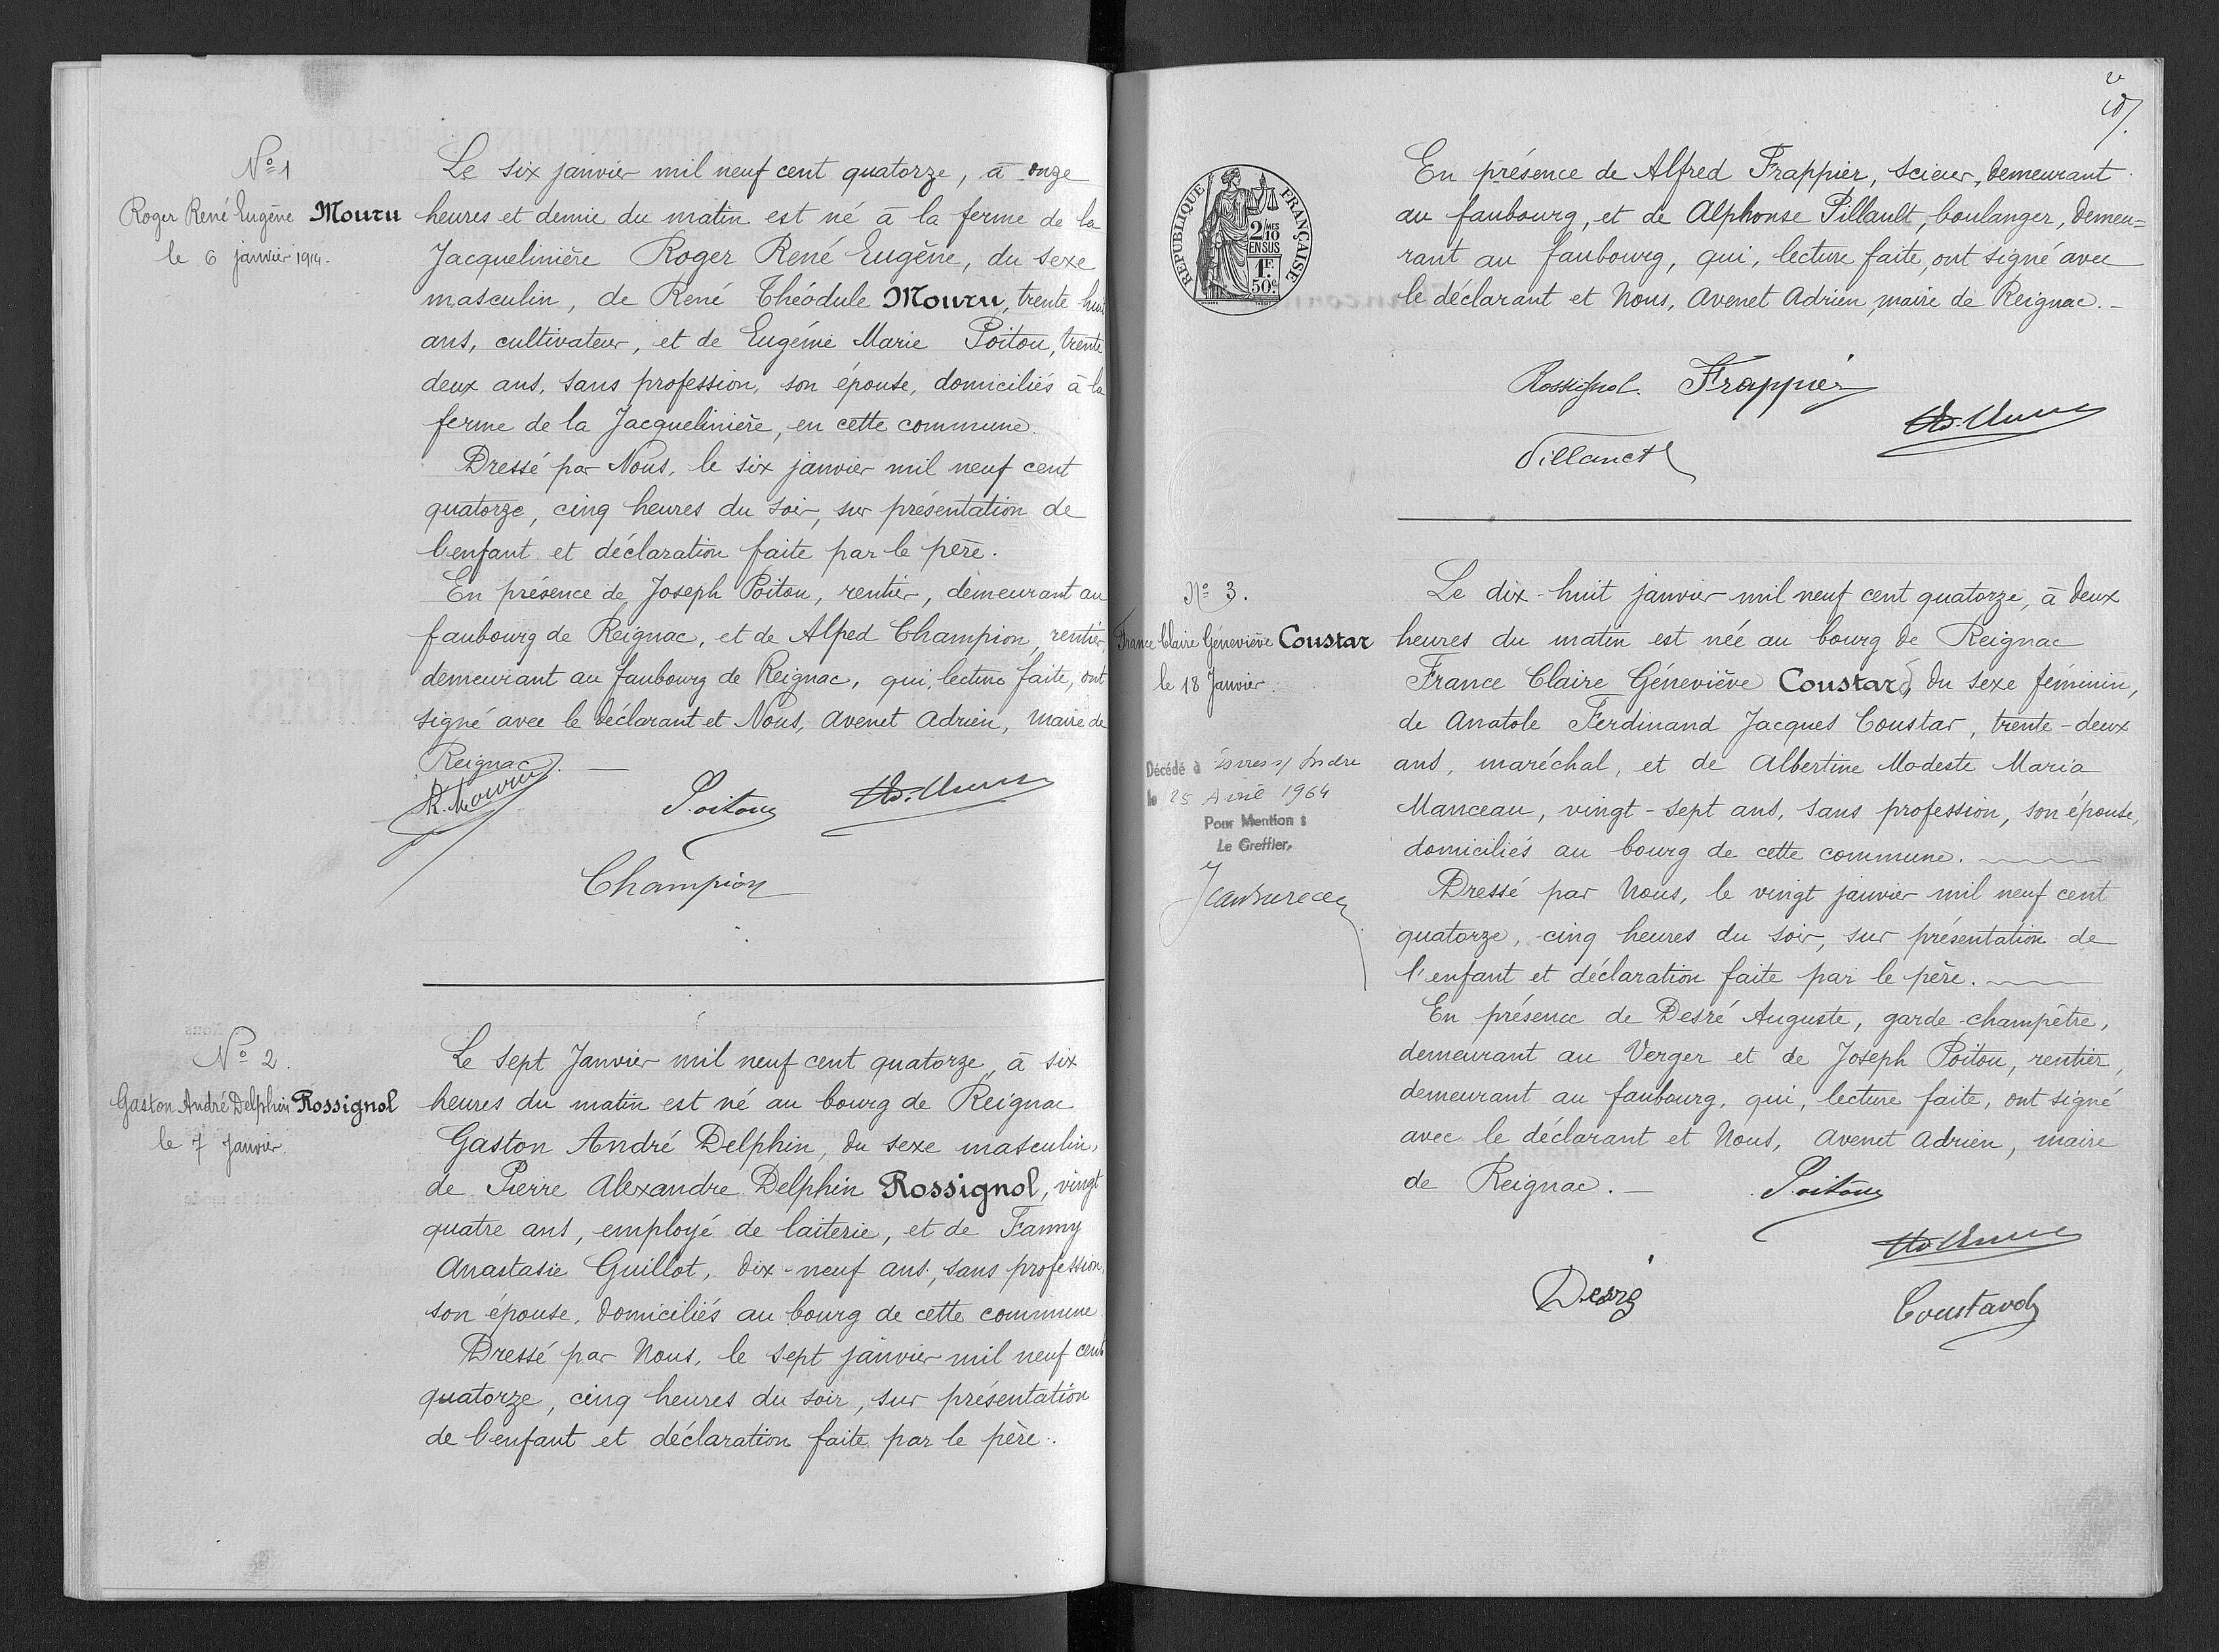 Nº 1
Roger René Eugène Mouru
le 6 janvier 1914.
Le six janvier mil neuf cent quatorze, à onze
heures et demie du matin est né à la ferme de la
Jacquelinière Roger René Eugène, du sexe
masculin, de René Théodule Mouru, trente huit
ans, cultivateur, et de Eugénie Marie Poitou, trente
deux ans, sans profession, son épouse, domiciliés à la
ferme de la Jacquelinière, en cette commune.
Dressé par Nous, le six janvier mil neuf cent
quatorze, cinq heures du soir, sur présentation de
l'enfant et déclaration faite par le père.
En présence de Joseph Poitou, rentier, demeurant au
faubourg de Reignac, et de Alfred Champion, rentier,
demeurant au faubourg de Reignac, qui, lecture faite, ont
signé avec le déclarant et Nous, Avenet Adrien, maire de
Reignac. —
R. Mouru
Poitou
Champion
Nº 2.
Gaston André Delphin Rossignol
le 7 Janvier.
Le sept Janvier mil neuf cent quatorze, à six
heures du matin est né au bourg de Reignac
Gaston André Delphin, du sexe masculin,
de Pierre Alexandre Delphin Rossignol, vingt
quatre ans, employé de laiterie, et de Fanny
Anastasie Guillot, dix-neuf ans, sans profession,
son épouse, domiciliés au bourg de cette commune.
Dressé par Nous, le sept janvier mil neuf cent
quatorze, cinq heures du soir, sur présentation
de l'enfant et déclaration faite par le père.
RÉPUBLIQUE FRANÇAISE
2 MES
10
EN SUS
1F.
50c
En présence de Alfred Frappier, scieur, demeurant
au faubourg, et de Alphonse Pillault, boulanger, demeu=
rant au faubourg, qui, lecture faite, ont signé avec
le déclarant et Nous, Avenet Adrien, maire de Reignac. —
Rossignol. Frappier
Nº 3.
France Claire Géneviève Coustar
le 18 Janvier.
Décédé à Indre
le 25 Avril 1964
Pour Mention :
Le Greffier,
Le dix-huit janvier mil neuf cent quatorze, à deux
heures du matin est née au bourg de Reignac
France Claire Géneviève Coustard, du sexe féminin,
de Anatole Ferdinand Jacques Coustar, trente-deux
ans, maréchal, et de Albertine Modeste Maria
Manceau, vingt-sept ans, sans profession, son épouse,
domiciliés au bourg de cette commune.
Dressé par Nous, le vingt janvier mil neuf cent
quatorze, cinq heures du soir, sur présentation de
l'enfant et déclaration faite par le père.
En présence de Desré Auguste, garde-champêtre,
demeurant au Verger et de Joseph Poitou, rentier,
demeurant au faubourg, qui, lecture faite, ont signé
avec le déclarant et Nous, Avenet Adrien, maire
de Reignac. —
Poitou
Desré
Coustard